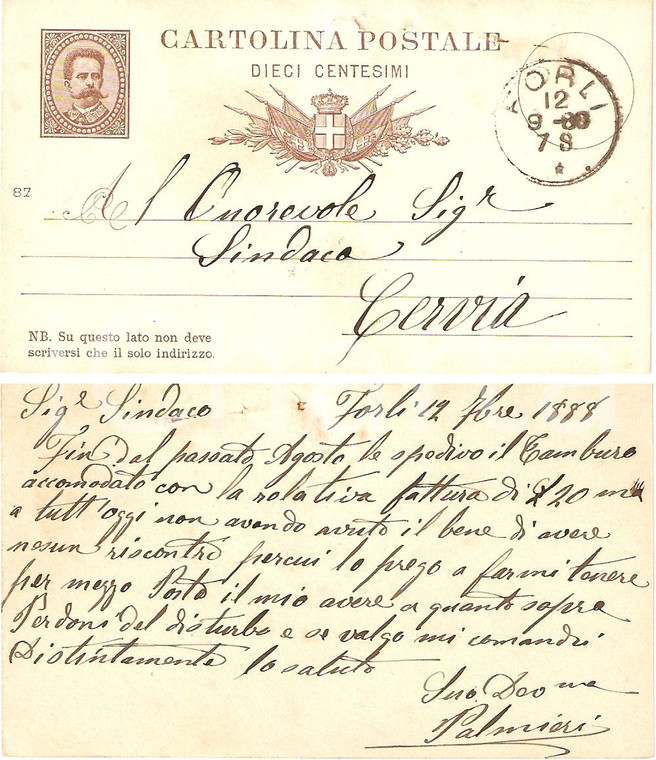 CARTOLINA POSTALE
DIECI CENTESIMI
FORLI
12
9-88
7 S
87
Al Onorevole Sigr
Sindaco
Cervia
NB. Su questo lato non deve
scriversi che il solo indirizzo.
Sigr Sindaco Forli 12 7bre 1888
Fin dal passato Agosto le spedivo il Tamburo
accomodato con la relativa fattura di £ 20 ma
a tutt'oggi non avendo avuto il bene di avere
nesun riscontro percui lo prego a farmi tenere
per mezzo Posta il mio avere a quanto sopra
Perdoni del disturbo e se valgo mi comandi
Distintamente lo saluto
Suo Devma
Palmieri